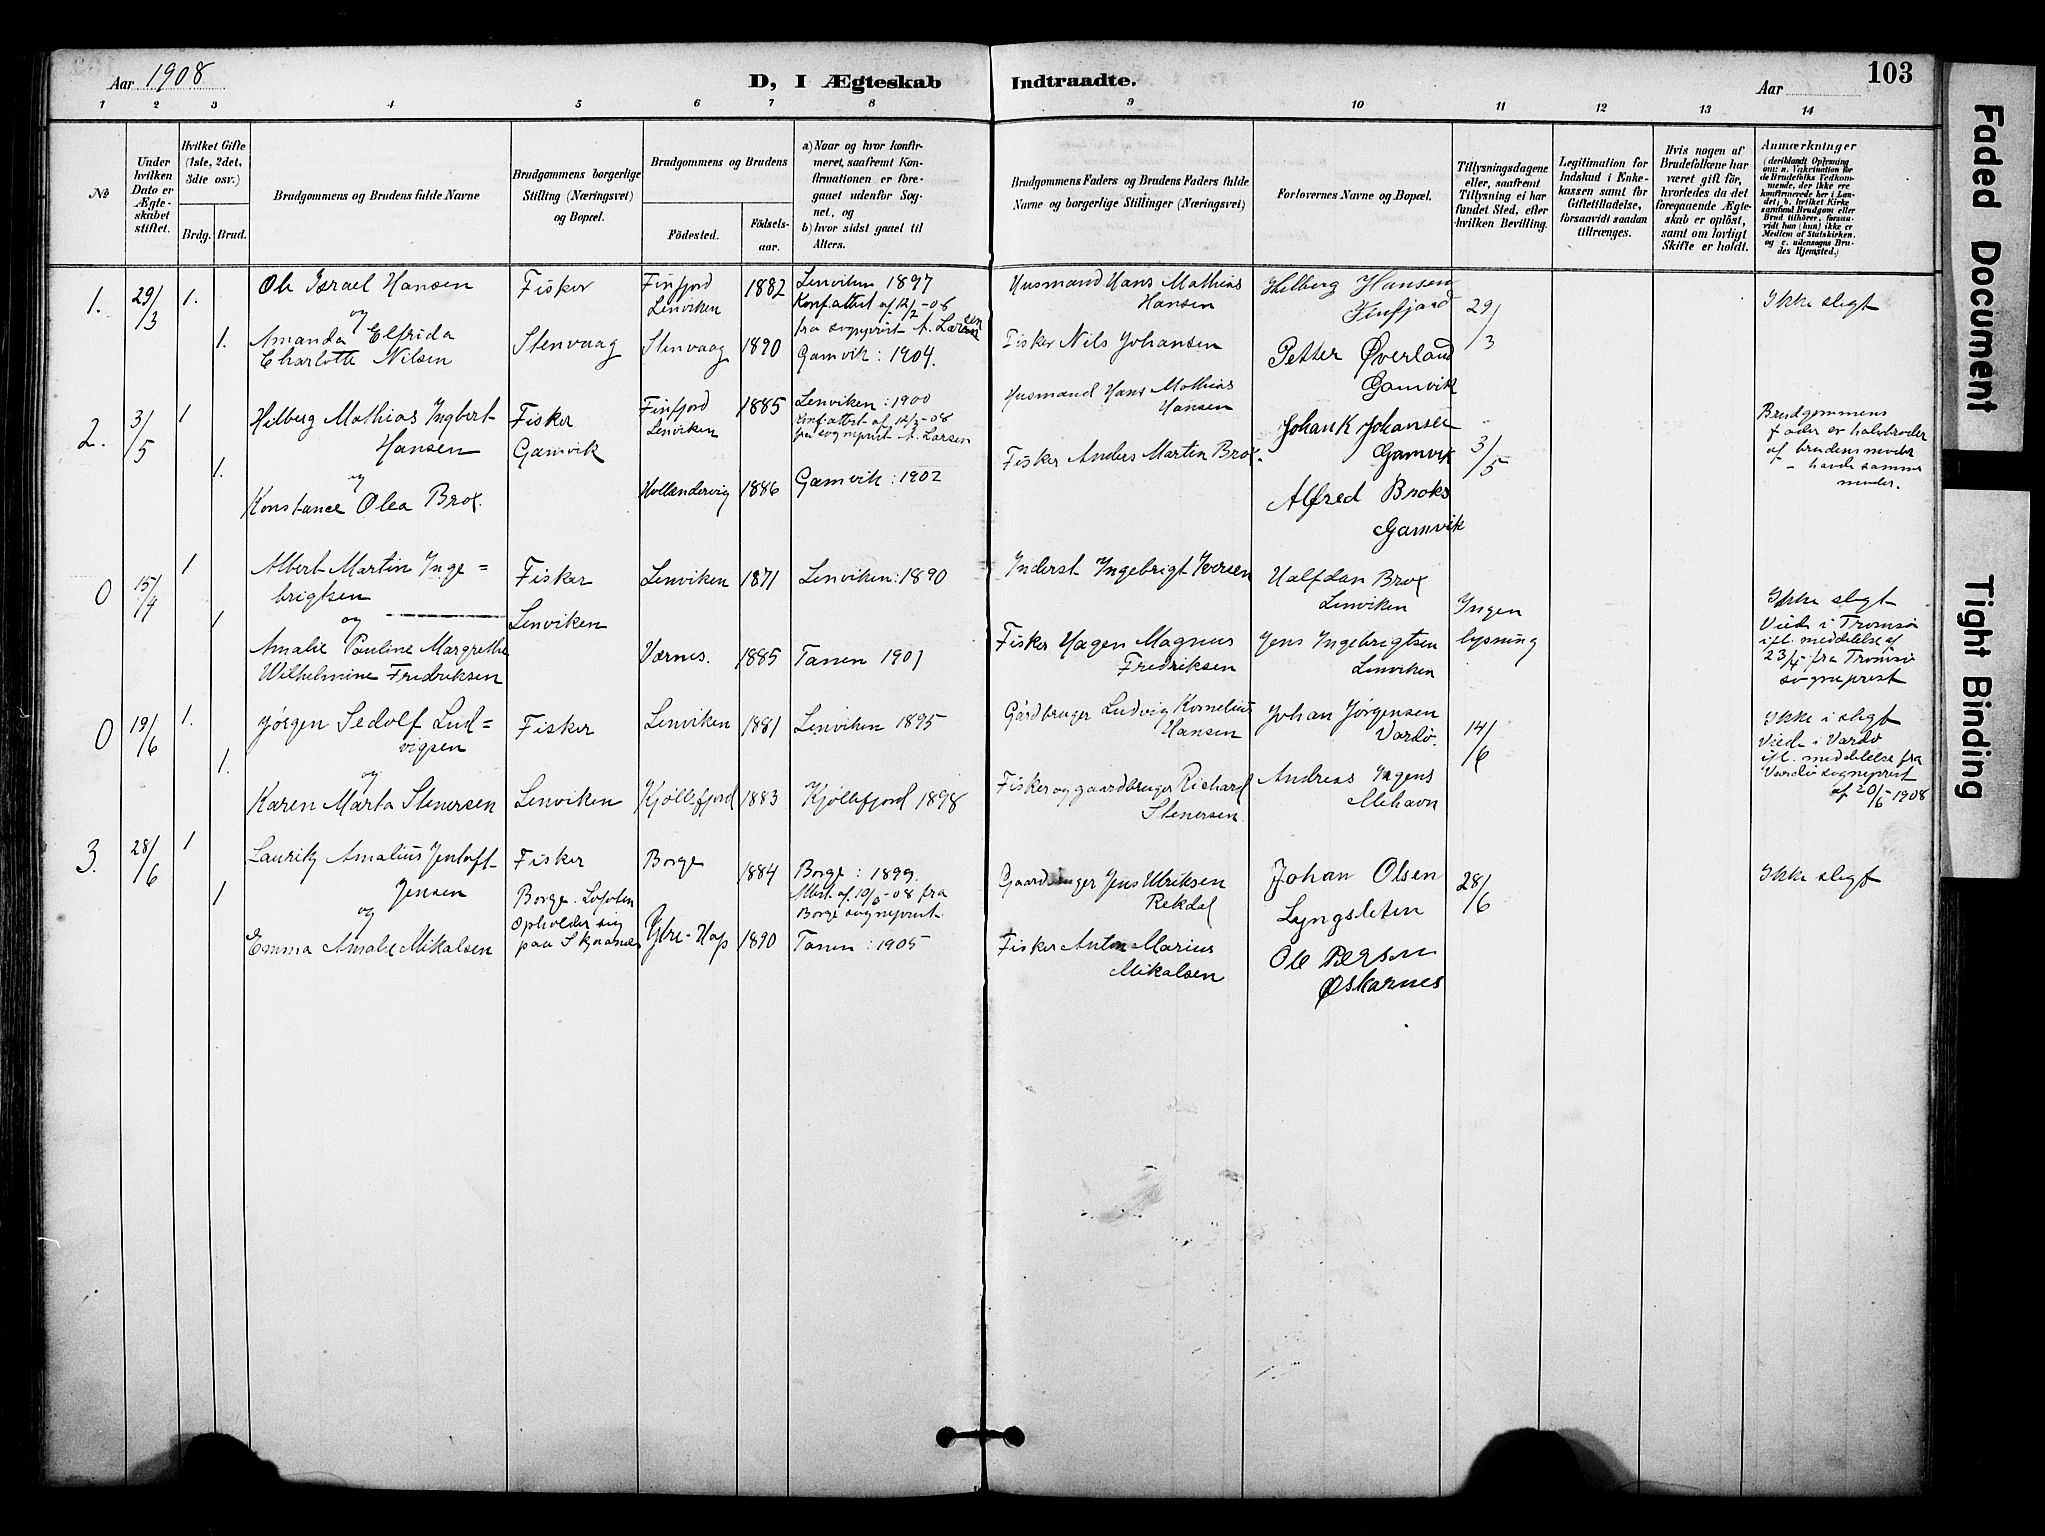 Aar 1908
D, I Ægteskab Indtraadte.
Aar
103
1 2 3 4 5 6 7 8 9 10 11 12 13 14
No
Under hvilken Dato er Ægteskabet stiftet.
Hvilket Gifte (1ste, 2det, 3die osv.)
Brdg. Brud.
Brudgommens og Brudens fulde Navne
Brudgommens borgerlige Stilling (Næringsvei) og Bopæl.
Brudgommens og Brudens
Fødested.
Fødselsaar.
a) Naar og hvor konfirmeret, saafremt Konfirmationen er foregaaet udenfor Sognet, og
b) hvor sidst gaaet til Alters.
Brudgommens Faders og Brudens Faders fulde Navne og borgerlige Stillinger (Næringsvei)
Forlovernes Navne og Bopæl.
Tillysningsdagene eller, saafremt Tillysning ei har fundet Sted, efter hvilken Bevilling.
Legitimation for Indskud i Enkekassen samt for Giftetilladelse, forsaavidt saadan tiltrænges.
Hvis nogen af Brudefolkene har været gift før, hvorledes da det foregaaende Ægteskab er opløst, samt om lovligt Skifte er holdt.
Anmærkninger
(deriblandt Oplysning om: a. Vakcination for de Brudefolks Vedkommende, der ikke ere konfirmerede her i Landet; b. hvilket Kirkesamfund Brudgom eller Brud tilhører, forsaavidt han (hun) ikke er Medlem af Statskirken, og c. udensogns Brudes Hjemsted.)
1. 29/3 1.
Ole Israel Hansen
og
1. Amanda Elfrida
Charlotte Nilsen
Fisker
Stenvaag
Finfjord
Lenviken
Stenvaag
1882
1890
Lenviken 1897
Konf.attest af 12/2-08
fra sogneprest A. Larsen
Gamvik: 1904.
Husmand Hans Mathias
Hansen
Fisker Nils Johansen
Hilberg Hansen
Finfjord
Petter Øverland
Gamvik
29/3
Ikke slegt
2. 3/5 1
Hilberg Mathias Ingbert
Hansen
og
1. Konstance Olea Brox.
Fisker
Gamvik
Finfjord
Lenviken
Hollændervig
1885
1886
Lenviken: 1900
Konf.attest af 12/2-08
fra sogneprest A. Larsen
Gamvik: 1902
Husmand Hans Mathias
Hansen
Fisker Anders Martin Brox.
Johan K Johansen
Gamvik
Alfred Broks
Gamvik
3/5
Brudgommens
fader er halvbroder
af brudens moder
- havde samme
moder.
0 15/4 1
Albert Martin Inge=
brigtsen
og
1. Amalie Pauline Margrethe
Wilhelmine Fredriksen
Fisker
Lenviken
Lenviken
Værnes.
1871
1885
Lenviken: 1890
Tanen 1901
Inderst Ingebrigt Iversen
Fisker Hagen Magnus
Fredriksen
Halfdan Brox
Lenviken
Jens Ingebrigtsen
Lenviken
Ingen
lysning
Ikke slegt
Viede i Tromsø
ifl. meddelelse af
23/4- fra Tromsø
sogneprest
0 19/6 1.
Jørgen Sedolf Lud=
vigsen
og
1. Karen Marta Stenersen
Fisker
Lenviken
Lenviken
Kjøllefjord
1881
1883
Lenviken 1895
Kjøllefjord 1898
Gårdbruger Ludvig Kornelius
Hansen
Fisker og gaardbruger Richard
Stenersen
Johan Jørgensen
Vardø.
Andreas Ingens
Mehavn
14/6
Ikke i slegt
Viede i Vardø
ifl. meddelelse fra
Vardø sogneprest
af 20/6-1908
3. 28/6 1
Lauritz Amalius Jentoft
Jensen
og
1 Emma Amalie Mikalsen
Fisker
Borge. Lofoten
Opholder sig
paa
Borge
Ytre-Hop
1884
1890
Borge: 1899.
Attest af 19/6-08 fra
Borge sogneprest.
Tanen: 1905
Gaardbruger Jens Ulriksen
Rekdal
Fisker Anton Marius
Mikalsen
Johan Olsen
Lyngsleten
Ole Persson
Øskarnes
28/6
Ikke slegt
Faded Document
Tight Binding